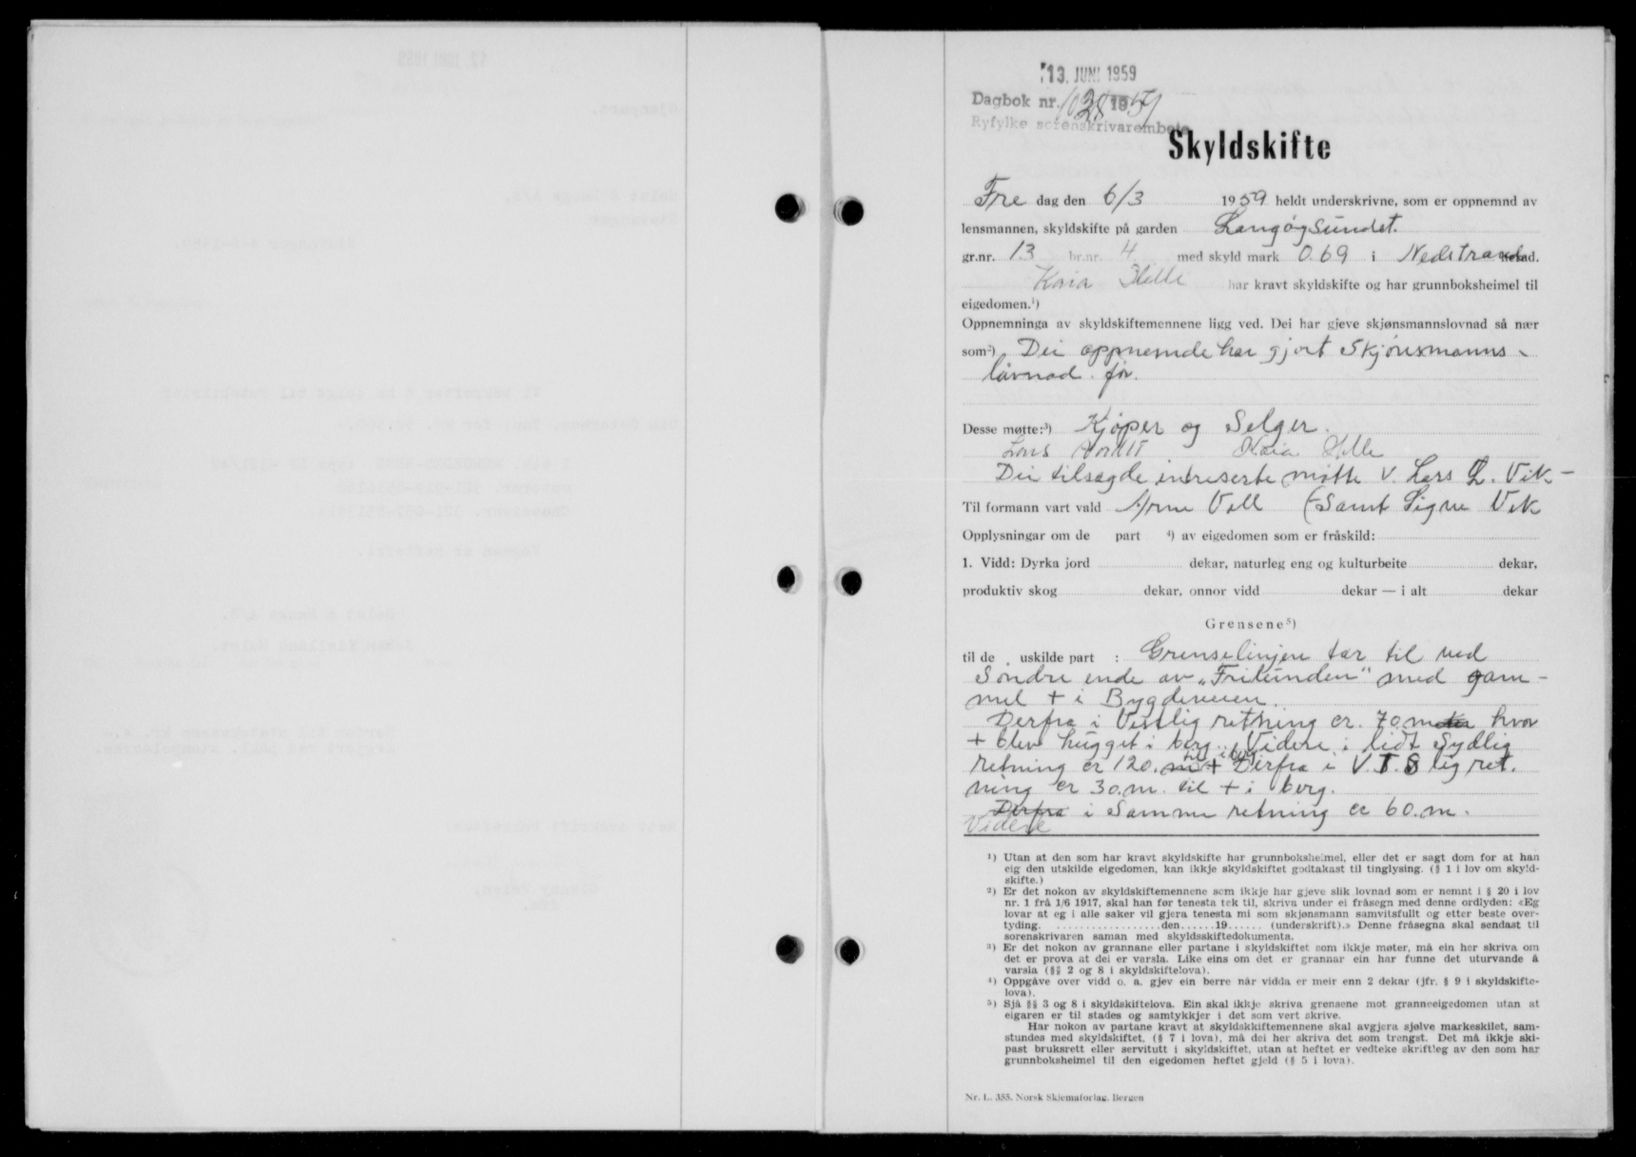 13. JUNI 1959
Dagbok nr. 1028 1959
Ryfylke sorenskrivarembete
Skyldskifte
Fre dag den 6/3 1959 heldt underskrivne, som er oppnemnd av
lensmannen, skyldskifte på garden Langøysundet.
gr.nr. 13 br.nr. 4 med skyld mark 0.69 i Nedstrand
Kaia Helle har kravt skyldskifte og har grunnboksheimel til
eigedomen.¹)
Oppnemninga av skyldskiftemennene ligg ved. Dei har gjeve skjønsmannslovnad så nær
som²) Dei oppnemde har gjort Skjønsmanns-
lovnad før.
Desse møtte:³) Kjøper og Selger.
Kaia Helle
Dei tilsagde intreserte møtte v. Lars L. Vik -
Til formann vart vald Arne Vall (Samt Signe Vik
Opplysningar om de part ⁴) av eigedomen som er fråskild:
1. Vidd: Dyrka jord dekar, naturleg eng og kulturbeite dekar,
produktiv skog dekar, onnor vidd dekar — i alt dekar
Grensene⁵)
til de uskilde part : Grenselinjen tar til ved
Søndre ende av "Friteinden" med gam-
mel + i Bygdeveien.
Derfra i Vestlig retning er. 70 meter hvor
+ blev hugget i berg. Videre i lidt Sydlig
retning er 120. m til + i berg Derfra i V.T.S lig ret.
ning er 30. m. til + i berg.
Derfra i Samme retning er 60. m.
Videre
¹) Utan at den som har kravt skyldskifte har grunnboksheimel, eller det er sagt dom for at han
eig den utskilde eigedomen, kan ikkje skyldskiftet godtakast til tinglysing. (§ 1 i lov om skyld-
skifte.)
²) Er det nokon av skyldskiftemennene som ikkje har gjeve slik lovnad som er nemnt i § 20 i lov
nr. 1 frå 1/6 1917, skal han før tenesta tek til, skriva under ei fråsegn med denne ordlyden: «Eg
lovar at eg i alle saker vil gjera tenesta mi som skjønsmann samvitsfullt og etter beste over-
tyding. ..................den......19...... (underskrift).» Denne fråsegna skal sendast til
sorenskrivaren saman med skyldsskiftedokumenta.
³) Er det nokon av grannane eller partane i skyldskiftet som ikkje møter, må ein her skriva om
det er prova at dei er varsla. Like eins om det er grannar ein har funne det uturvande å
varsla (§§ 2 og 8 i skyldskiftelova).
⁴) Oppgåve over vidd o. a. gjev ein berre når vidda er meir enn 2 dekar (jfr. § 9 i skyldskifte-
lova).
⁵) Sjå §§ 3 og 8 i skyldskiftelova. Ein skal ikkje skriva grensene mot granneeigedomen utan at
eigaren er til stades og samtykkjer i det som vert skrive.
Har nokon av partane kravt at skyldskiftemennene skal avgjera sjølve markeskilet, sam-
stundes med skyldskiftet, (§ 7 i lova), må dei her skriva det som trengst. Det må ikkje ski-
past bruksrett eller servitutt i skyldskiftet, utan at heftet er vedteke skriftleg av den som har
grunnboksheimel til den eigedomen heftet gjeld (§ 5 i lova).
Nr. L. 355. Norsk Skjemaforlag, Bergen